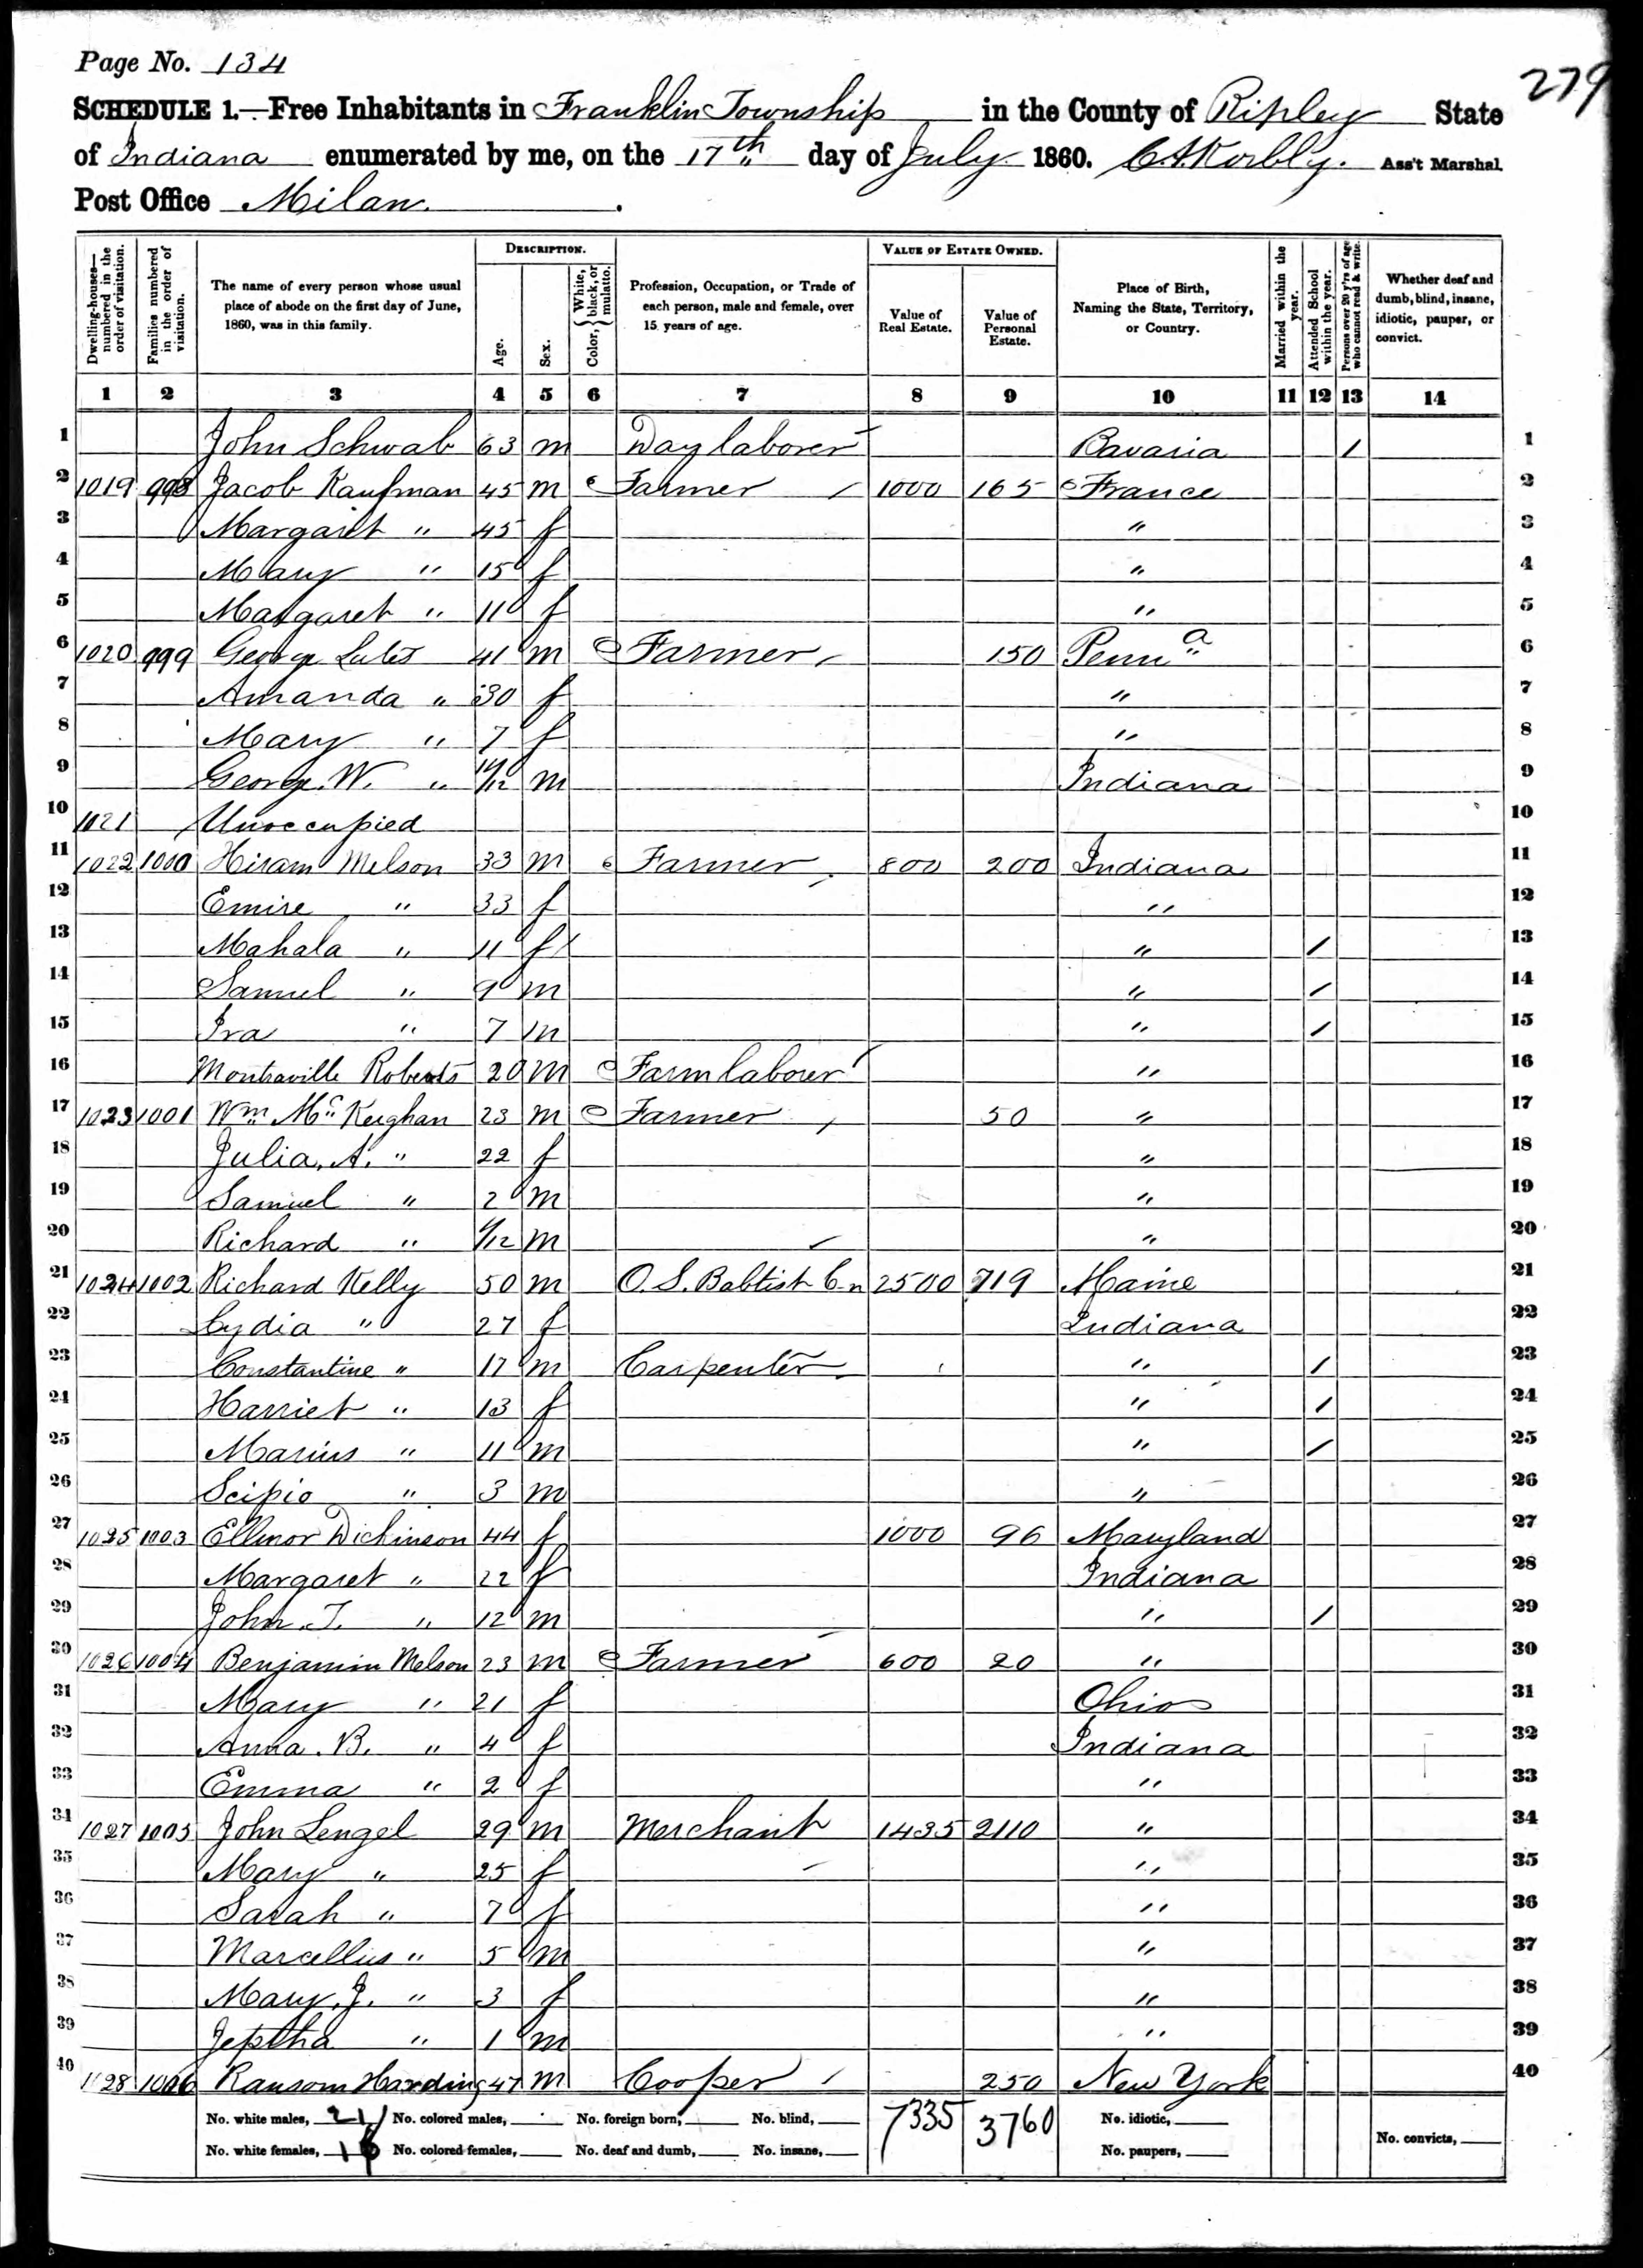 Page No. 134
279
SCHEDULE 1.—Free Inhabitants in Franklin Township in the County of Ripley State
of Indiana enumerated by me, on the 17th day of July 1860. C.A. Korbly. Ass't Marshal.
Post Office Milan.
Dwelling-houses—numbered in the order of visitation.
Families numbered in the order of visitation.
The name of every person whose usual place of abode on the first day of June, 1860, was in this family.
DESCRIPTION.
Age.
Sex.
Color, { White, black, or mulatto.
Profession, Occupation, or Trade of each person, male and female, over 15 years of age.
VALUE OF ESTATE OWNED.
Value of Real Estate.
Value of Personal Estate.
Place of Birth, Naming the State, Territory, or Country.
Married within the year.
Attended School within the year.
Persons over 20 y'rs of age who cannot read & write.
Whether deaf and dumb, blind, insane, idiotic, pauper, or convict.
1 2 3 4 5 6 7 8 9 10 11 12 13 14
1 John Schwab 63 m Day laborer Bavaria / 1
2 1019 998 Jacob Kaufman 45 m Farmer 1000 165 France 2
3 Margaret " 45 f " 3
4 Mary " 15 f " 4
5 Margaret " 11 f " 5
6 1020 999 George Lutes 41 m Farmer 150 Penna 6
7 Amanda " 30 f " 7
8 Mary " 7 f " 8
9 George W. " /12 m Indiana 9
10 1021 Unoccupied 10
11 1022 1000 Hiram Melson 33 m Farmer 800 200 Indiana 11
12 Emire " 33 f " 12
13 Mahala " 11 f " / 13
14 Samuel " 9 m " / 14
15 Ira " 7 m " / 15
16 Montraville Roberts 20 m Farm laborer " 16
17 1023 1001 Wm. McKeighan 23 m Farmer 50 " 17
18 Julia, A. " 22 f " 18
19 Samuel " 2 m " 19
20 Richard " /12 m " 20
21 1024 1002 Richard Kelly 50 m O. S. Babtist C n 2500 719 Maine 21
22 Lydia " 27 f Indiana 22
23 Constantine " 17 m Carpenter " / 23
24 Harriet " 13 f " / 24
25 Marius " 11 m " / 25
26 Scipio " 3 m " 26
27 1025 1003 Ellenor Dickinson 44 f 1000 96 Maryland 27
28 Margaret " 22 f Indiana 28
29 John. T. " 12 m " / 29
30 1026 1004 Benjamin Melson 23 m Farmer 600 20 " 30
31 Mary " 21 f Ohio 31
32 Anna. B. " 4 f Indiana 32
33 Emma " 2 f " 33
34 1027 1005 John Lengel 29 m Merchant 1435 2110 " 34
35 Mary " 25 f " 35
36 Sarah " 7 f " 36
37 Marcellus " 5 m " 37
38 Mary. J. " 3 f " 38
39 Jeptha " 1 m " 39
40 1028 1006 Ransom Harding 47 m Cooper 250 New York 40
No. white males, 21 No. colored males, No. foreign born, No. blind, 7335 3760 No. idiotic,
No. white females, 18 No. colored females, No. deaf and dumb, No. insane, No. paupers, No. convicts,